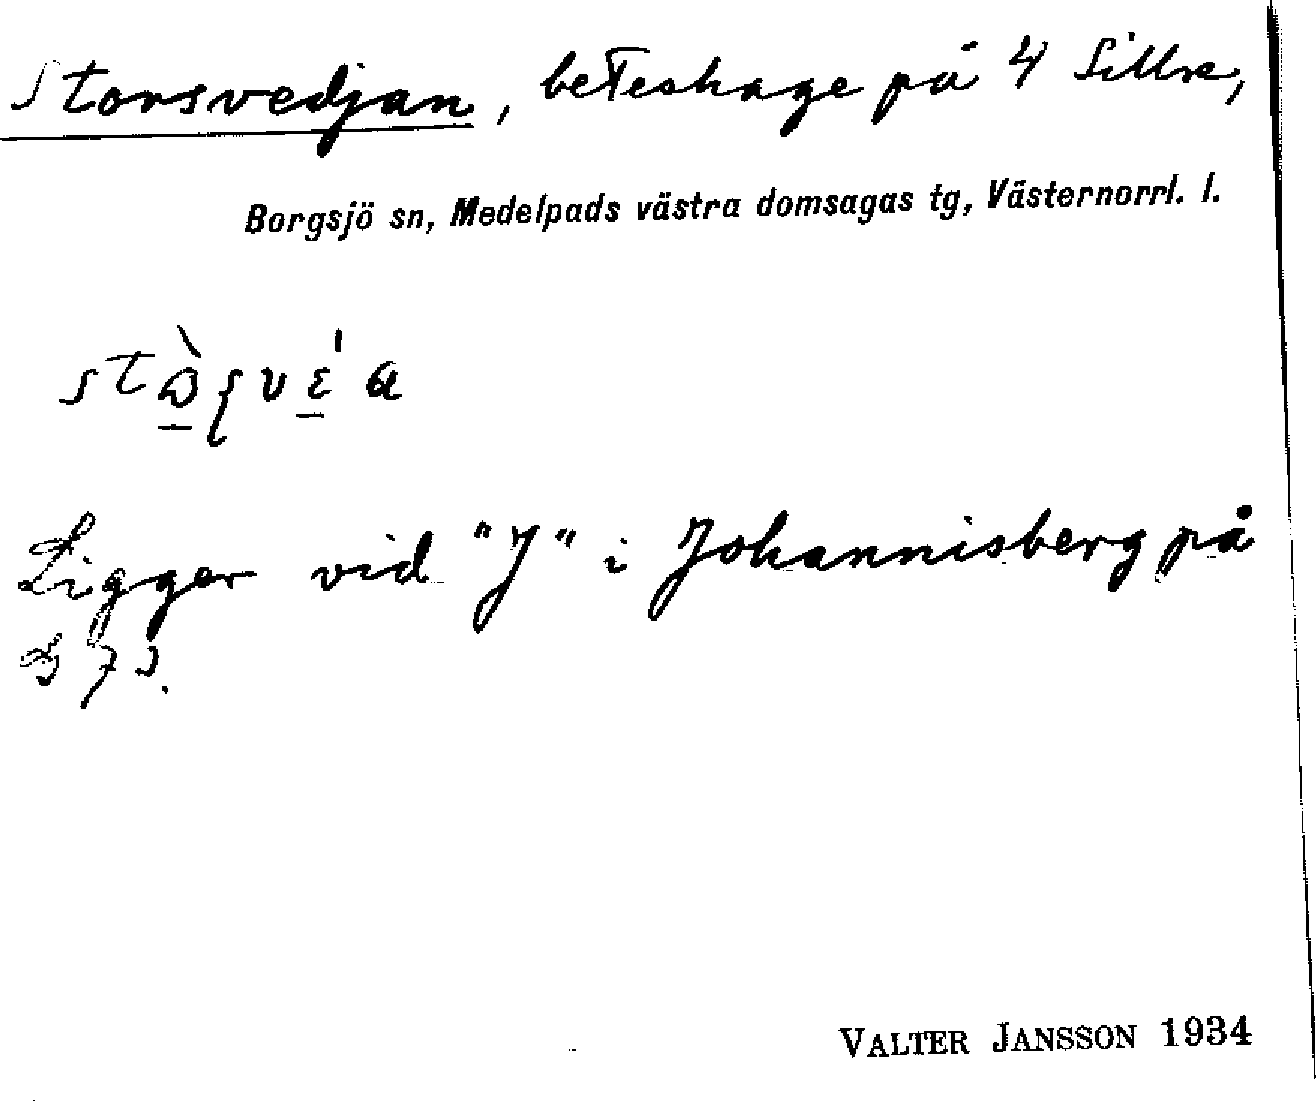 Storsvedjan, beteshage på 4 Sillre,
Borgsjö sn, Medelpads västra domsagas tg, Västernorrl. l.
Ligger vid "J" i Johannisberg på
VALTER JANSSON 1934